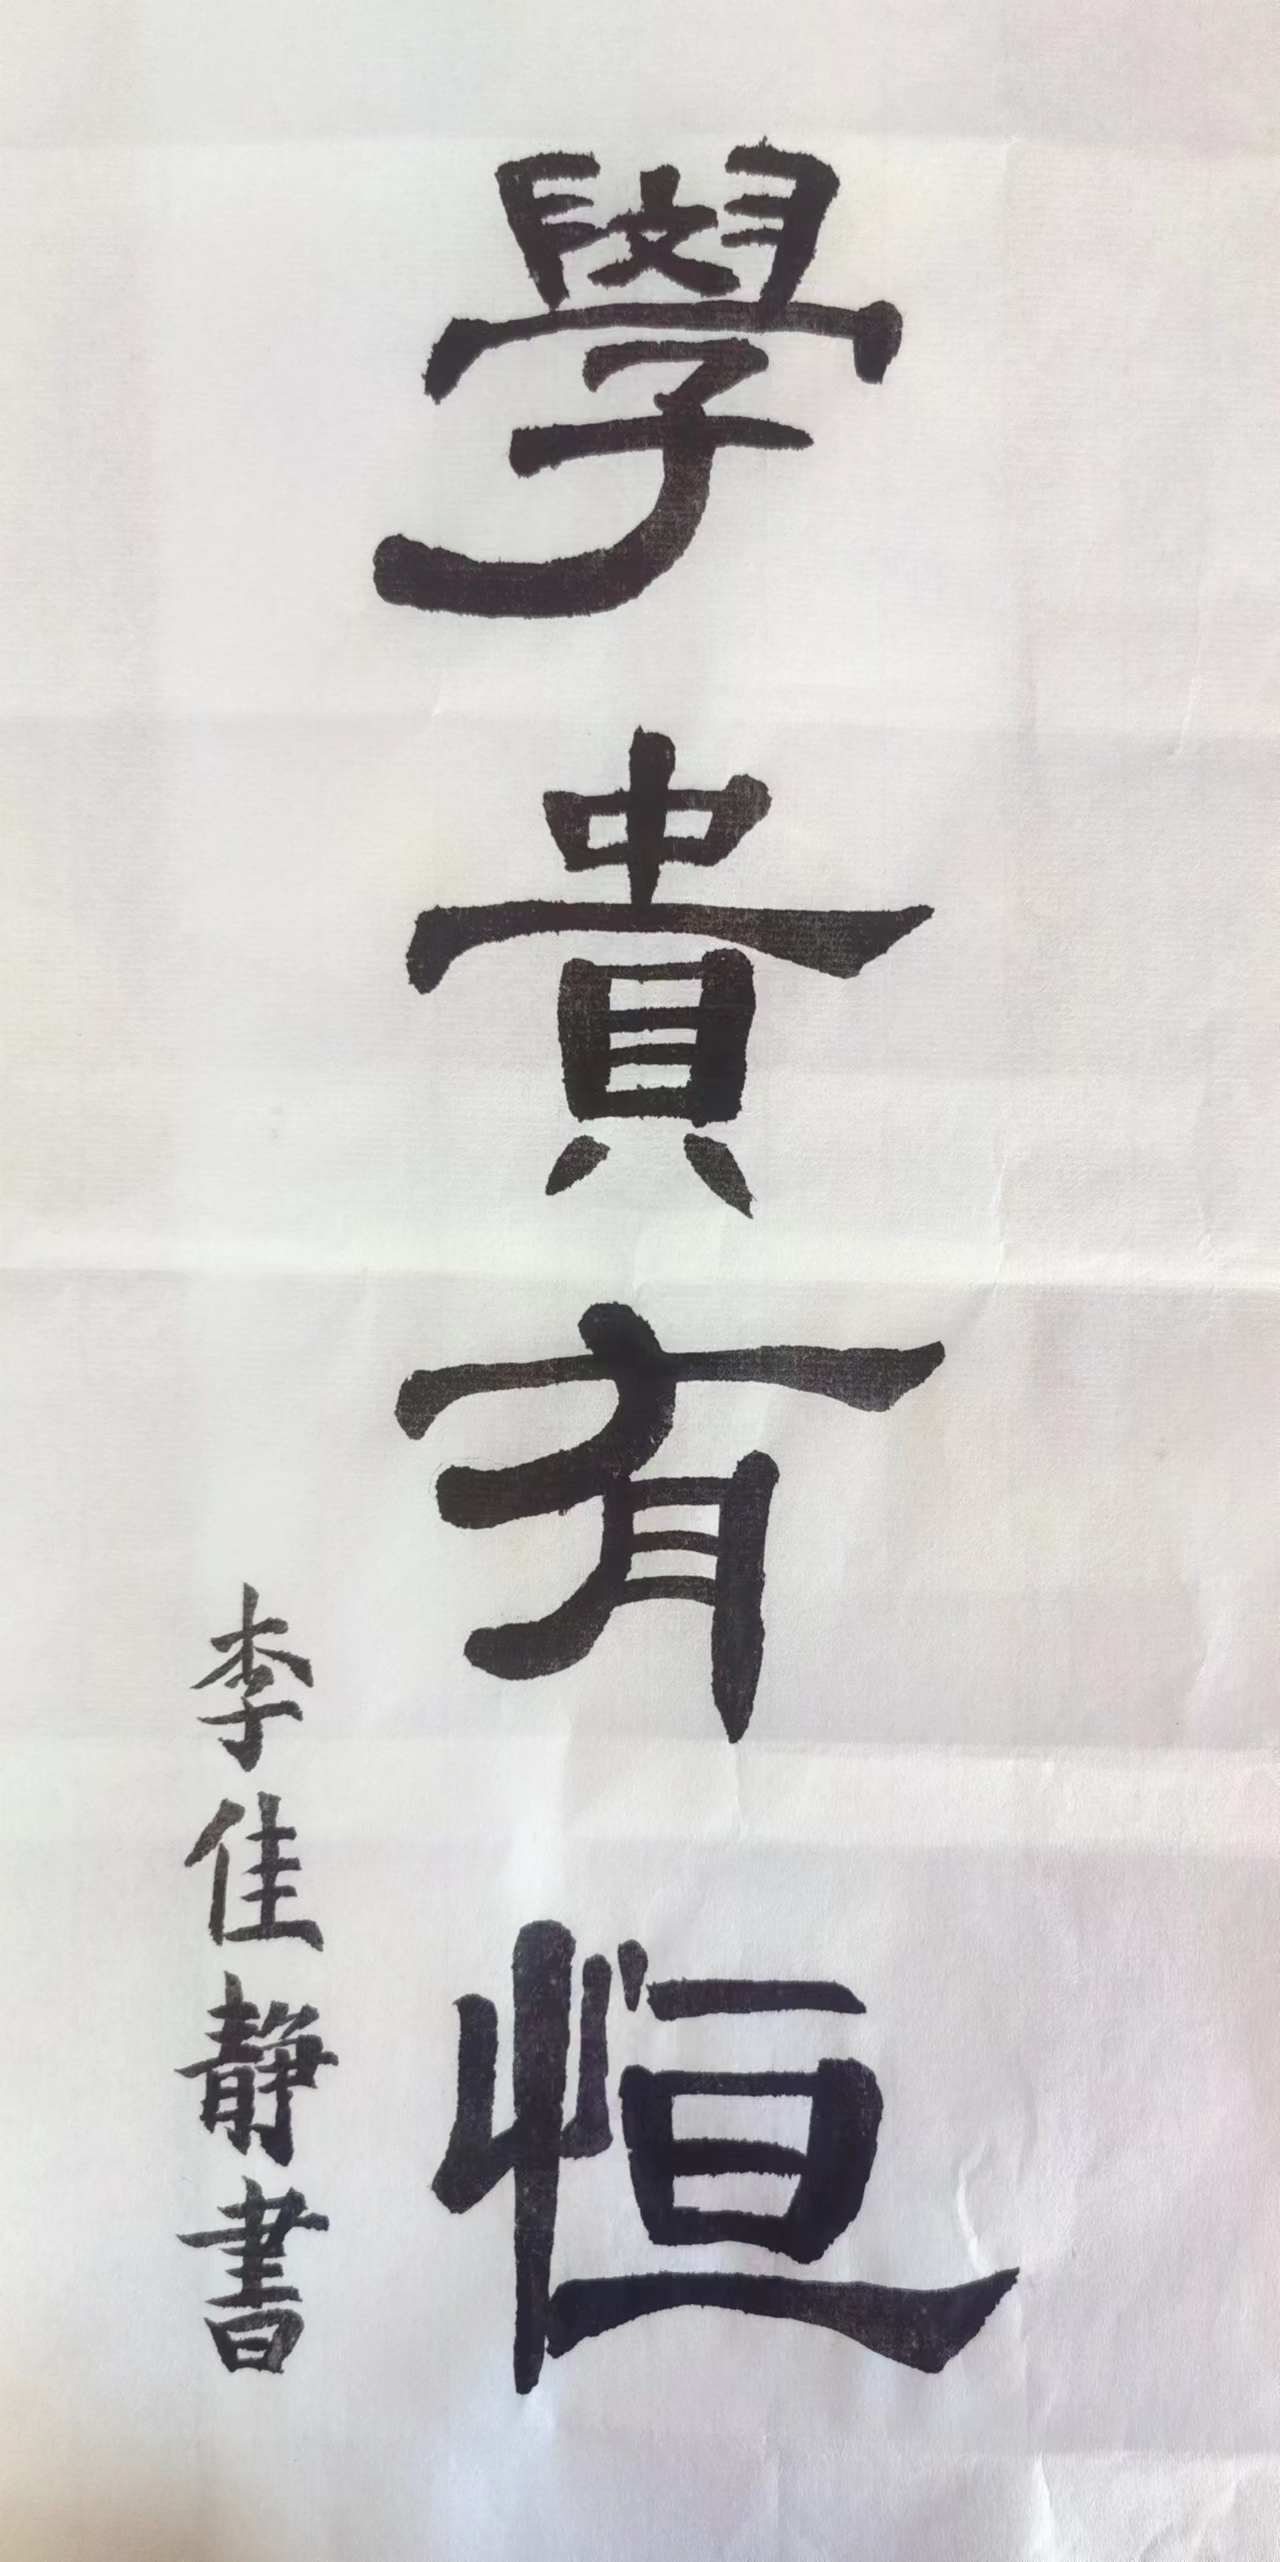 學貴有恒
李佳靜書